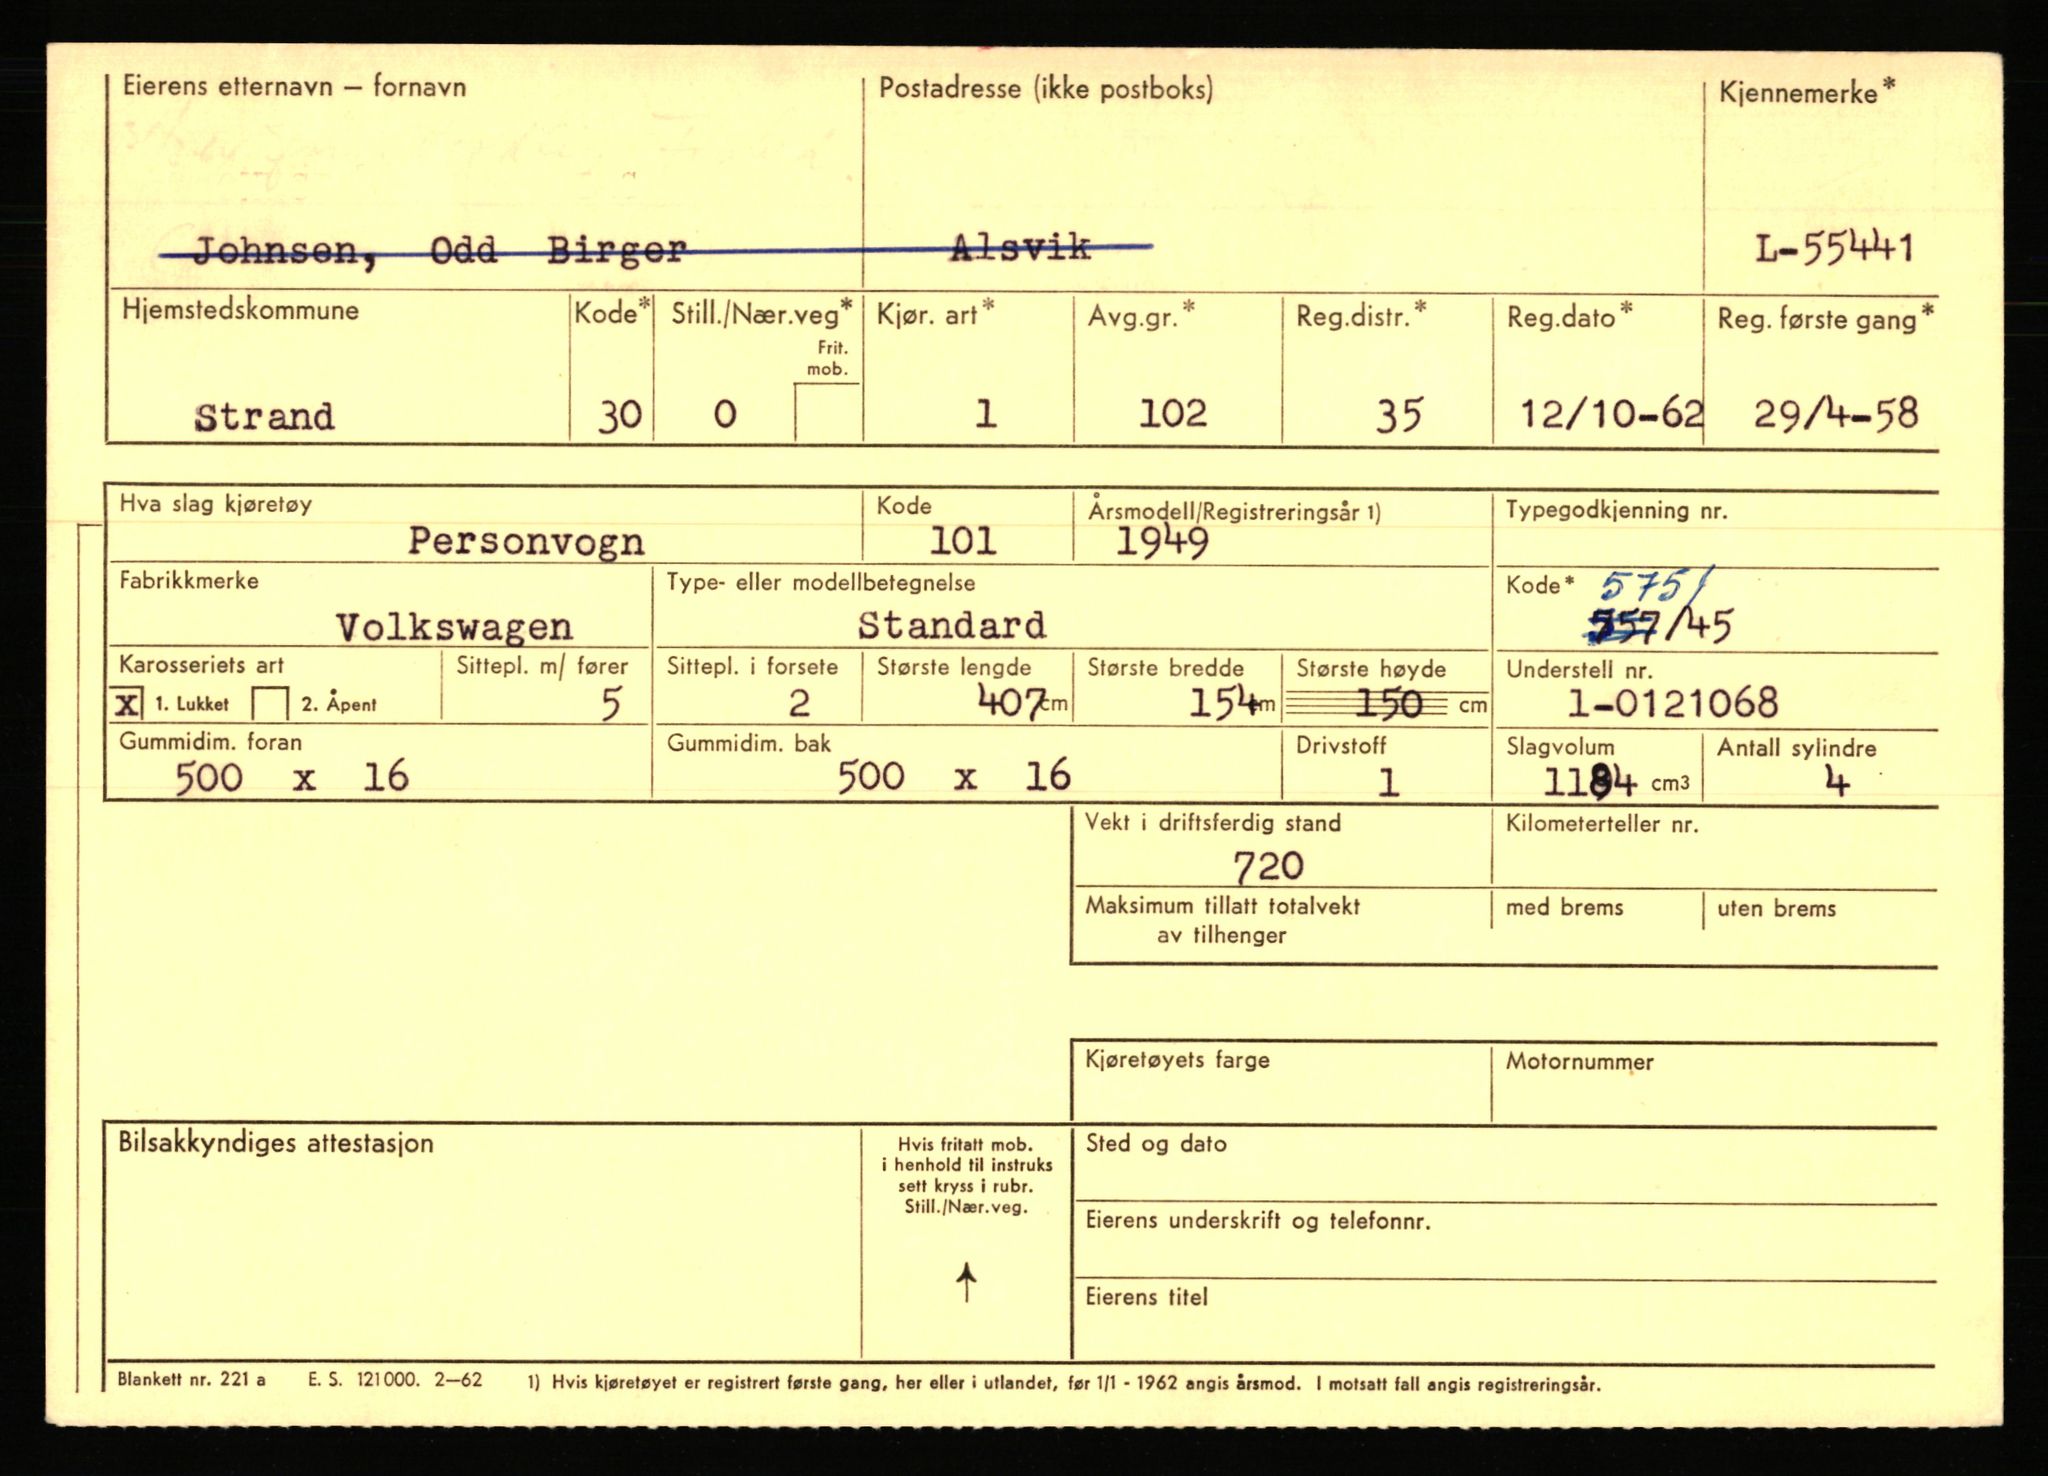 Eierens etternavn – fornavn Postadresse (ikke postboks) Kjennemerke*
Johnsen, Odd Birger Alsvik L-55441
Hjemstedskommune Kode* Still./Nær.veg* Kjør. art* Avg.gr.* Reg.distr.* Reg.dato* Reg. første gang*
Frit.
mob.
Strand 30 0 1 102 35 12/10-62 29/4-58
Hva slag kjøretøy Kode Årsmodell/Registreringsår 1) Typegodkjenning nr.
Personvogn 101 1949
Fabrikkmerke Type- eller modellbetegnelse Kode* 575/
Volkswagen Standard /45
Karosseriets art Sittepl. m/ fører Sittepl. i forsete Største lengde Største bredde Største høyde Understell nr.
X 1. Lukket 2. Åpent 5 2 407 cm 154 m 150 cm 1-0121068
Gummidim. foran Gummidim. bak Drivstoff Slagvolum Antall sylindre
500 x 16 500 x 16 1 cm3 4
Vekt i driftsferdig stand Kilometerteller nr.
720
Maksimum tillatt totalvekt med brems uten brems
av tilhenger
Kjøretøyets farge Motornummer
Bilsakkyndiges attestasjon Hvis fritatt mob. Sted og dato
i henhold til instruks
sett kryss i rubr.
Still./Nær.veg.
Eierens underskrift og telefonnr.
Eierens titel
Blankett nr. 221 a E. S. 121000. 2–62 1) Hvis kjøretøyet er registrert første gang, her eller i utlandet, før 1/1 - 1962 angis årsmod. I motsatt fall angis registreringsår.